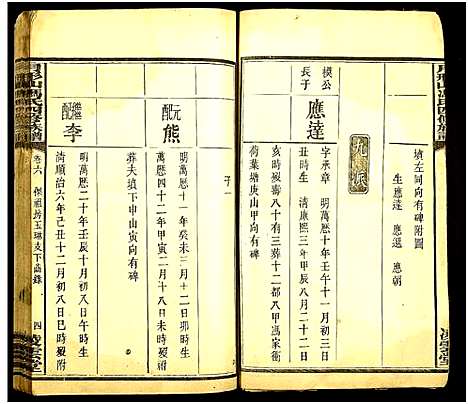 墳左同向有碑附圖
生應達 應選 應朝
九派
模公長子
應達
字承章 明萬厯十年壬午十一月初三日
丑時生 清康熙三年甲辰八月二十八日
亥時歿八十有三歲葬十二都馮家衝
荷葉塘庚山甲向有碑
子一
元配 熊
明萬厯十一年癸未三月十二日卯時生
萬厯四十二年甲寅二月十八日未時歿
葬夫墳下申山寅向有碑
繼配 李
明萬厯二十年壬辰十月初八日午時生
清順治六年己丑十二月初八日巳時歿附
月形山馮氏四修族譜
卷六
四